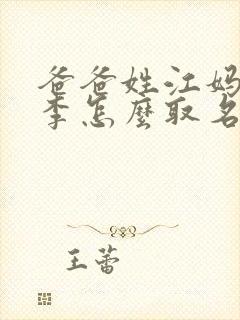 爸爸姓江妈
李怎麼取名
王蕾